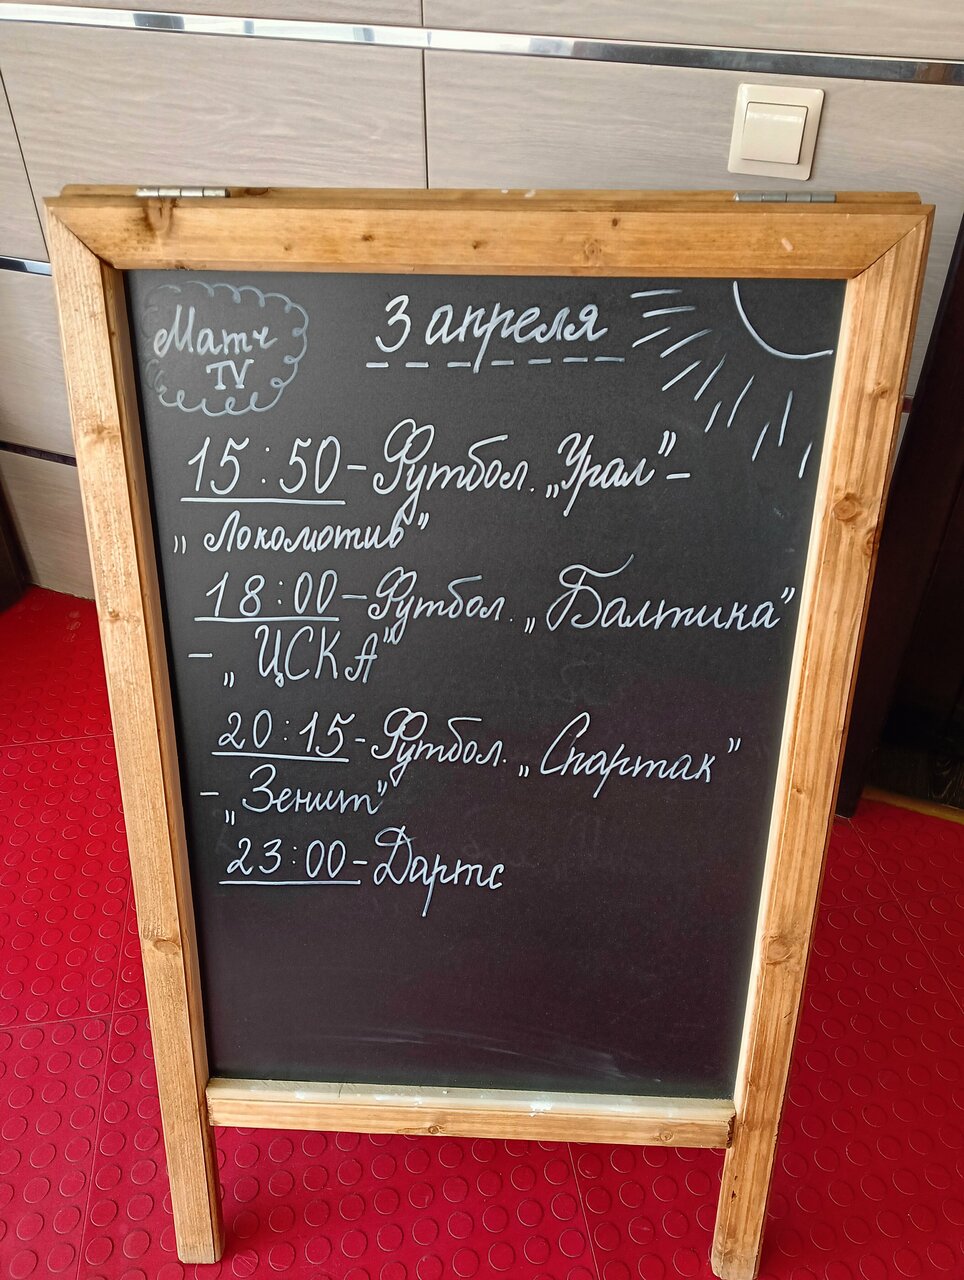 Матч
TV
3 апреля
15:50 - Футбол. „Урал" -
„Локомотив"
18:00 - Футбол. „Балтика"
- „ЦСКА"
20:15 - Футбол. „Спартак"
- „Зенит"
23:00 - Дартс